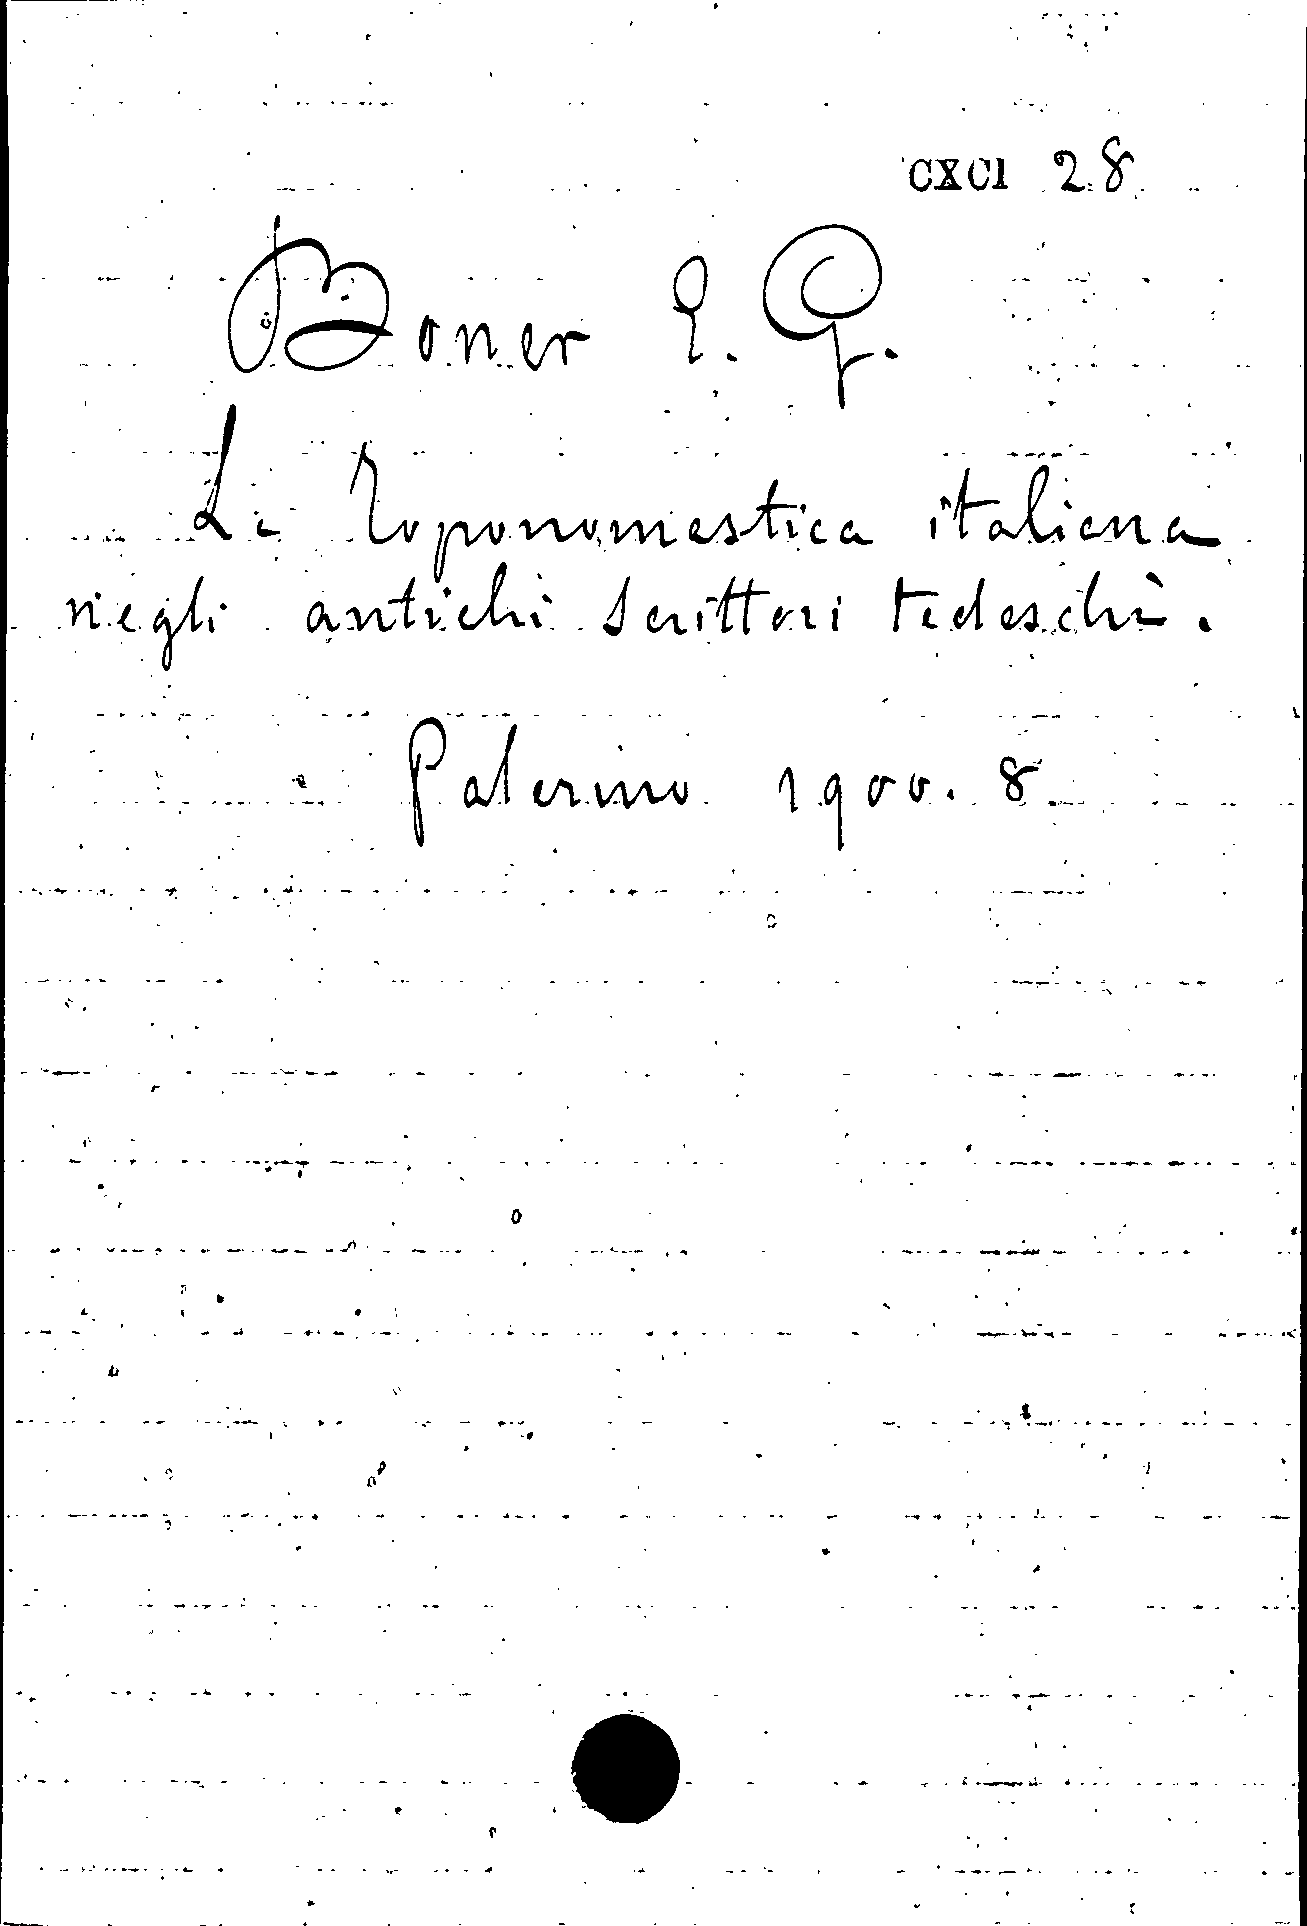 CXCI 28
Boner E. G.
La Toponomastica italiana
negli antichi scrittori tedeschi.
Palermo 1900. 8